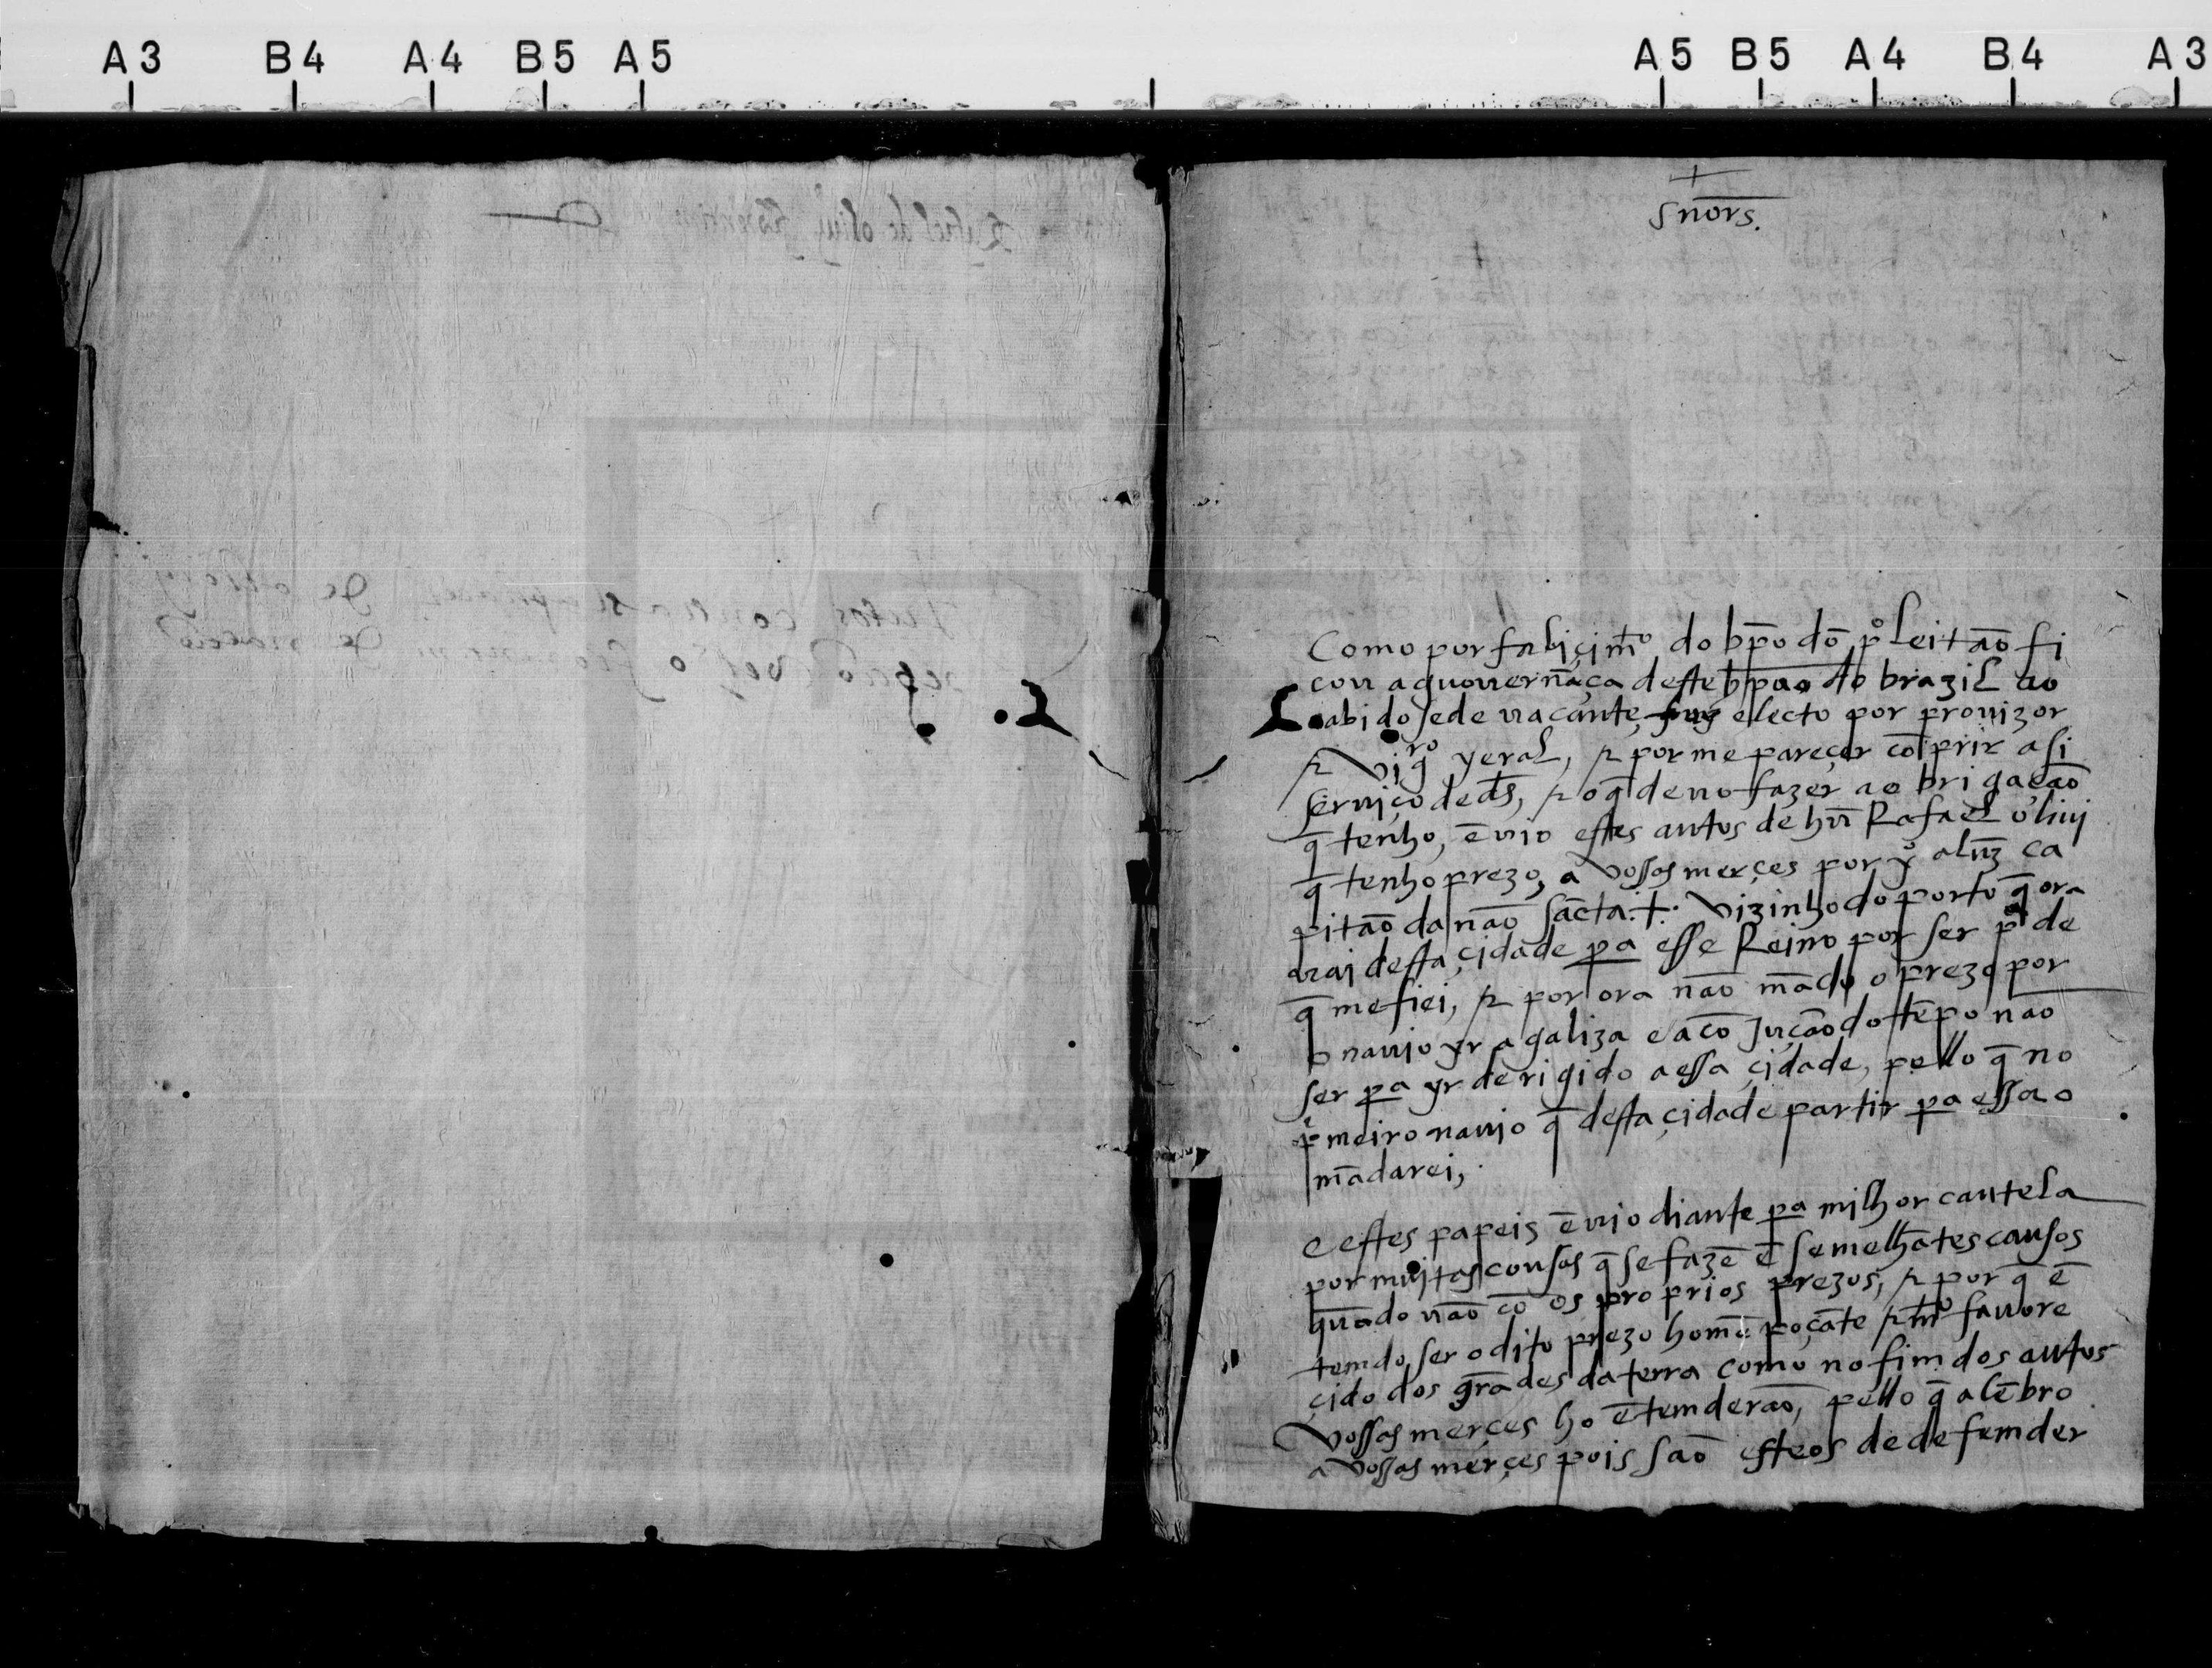 A3 B4 A4 B5 A5 A5 B5 A4 B4 A3
+
snors.
Como por falicim̃to do bpõ dõ pº leitaõ fi
cou aguouernãça deste bpado do brazil ao
cabido sede uacante, fuy electo por prouizor
& vigrº geral, & por me pareçer cõprir asi
seruiço de ds̃, & o q̃ deuo fazer a obrigaçaõ
q̃ tenho, ẽuio estes autos de hũ Rafael oliui
q̃ tenho prezo, a vossas merçes por yº aluz̃ ca
pitaõ da naõ sãcta .+. vizinho do porto q̃ ora
uai desta çidade pa esse Reino por ser pª de
q̃ me fiei, & por ora naõ mãdo o prezo por
o nauio yr a galiza e a cõjuçaõ do tẽpo naõ
ser pa yr derigido a essa çidade, pello q̃ no
pº meiro nauio q̃ desta çidade partir pa essa o
mãdarei,
e estes papeis ẽuio diante pa milhor cautela
por muitas cousas q̃ se fazẽ ẽ semelhãtes causos
quãdo uaõ cõ os proprios prezos, & por q̃ ẽ
temdo ser o dito prezo homẽ poçãte & mto fauore
çido dos grãdes da terra como no fim dos autos
vossas merçes ho ẽtemderaõ, pello q̃ alẽbro
a vossas merçes pois saõ esteos de defemder